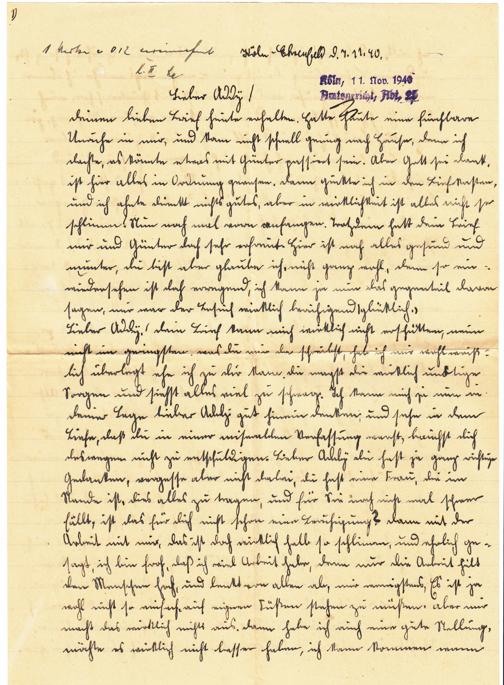 1)
1 Marke a 012
Köln-Ehrenfeld d. 7.11.40.
Köln, 11. Nov. 1940
Amtsgericht, Abt.
Lieber Addy!
deinen lieben Brief heute erhalten. Hatte heute eine furchtbare
Unruhe in mir, und kam nicht schnell genug nach Hause, denn ich
dachte, es könnte etwas mit Günter passiert sein. Aber Gott sei dank,
ist hier alles in Ordnung gewesen. dann guckte ich in den Briefkasten,
und ich ahnte direkt nichts gutes, aber in wirklichkeit ist alles nicht so
schlimm. Nun noch mal von anfangen. Trotzdem hatt dein Brief
mir und Günter doch sehr erfreut. Hier ist noch alles gesund und
munter, du bist aber glaube ich, nicht ganz wohl, denn so ein
wiedersehen ist doch erregend, ich kann ja nun das gegenteil davon
sagen, mir war der Besuch wirklich beruhigend, glücklich.
Lieber Addy! dein Brief kann mich wirklich nicht erschüttern, nein
nicht im geringsten was du mir da schreibst, hab ich mir wohl weiß-
lich überlegt ehe ich zu dir kam. du machst dir wirklich unnötige
Sorgen und siehst alles viel zu schwarz. Ich kann mich ja nun in
deiner Lage lieber Addy gut hinein denken, und sehe in dem
Briefe, daß du in einer miserablen Verfassung warst, brauchst dich
deswegen nicht zu entschuldigen. Lieber Addy du hast ja ganz richtige
Gedanken, vergesse aber nicht dabei, du hast eine Frau, die im
Stande ist, dies alles zu tragen, und für Sie noch nicht mal schwer
fällt, ist das für dich nicht schon eine Beruhigung? dann mit der
Arbeit mit mir, das ist doch wirklich halb so schlimm, und ehrlich ge-
sagt, ich bin froh, daß ich viel Arbeit habe, denn nur die Arbeit hilft
den Menschen hoch, und lenkt von allem ab, mir wenigstens, Es ist ja
wohl nicht so einfach, auf eigenen Füßen stehen zu müssen. Aber mir
macht das wirklich nichts aus, dann habe ich auch eine gute Stellung,
möchte es wirklich nicht besser haben, ich kann kommen wann